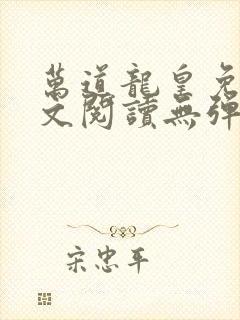 萬道龍皇免
文閱讀無彈
宋忠平